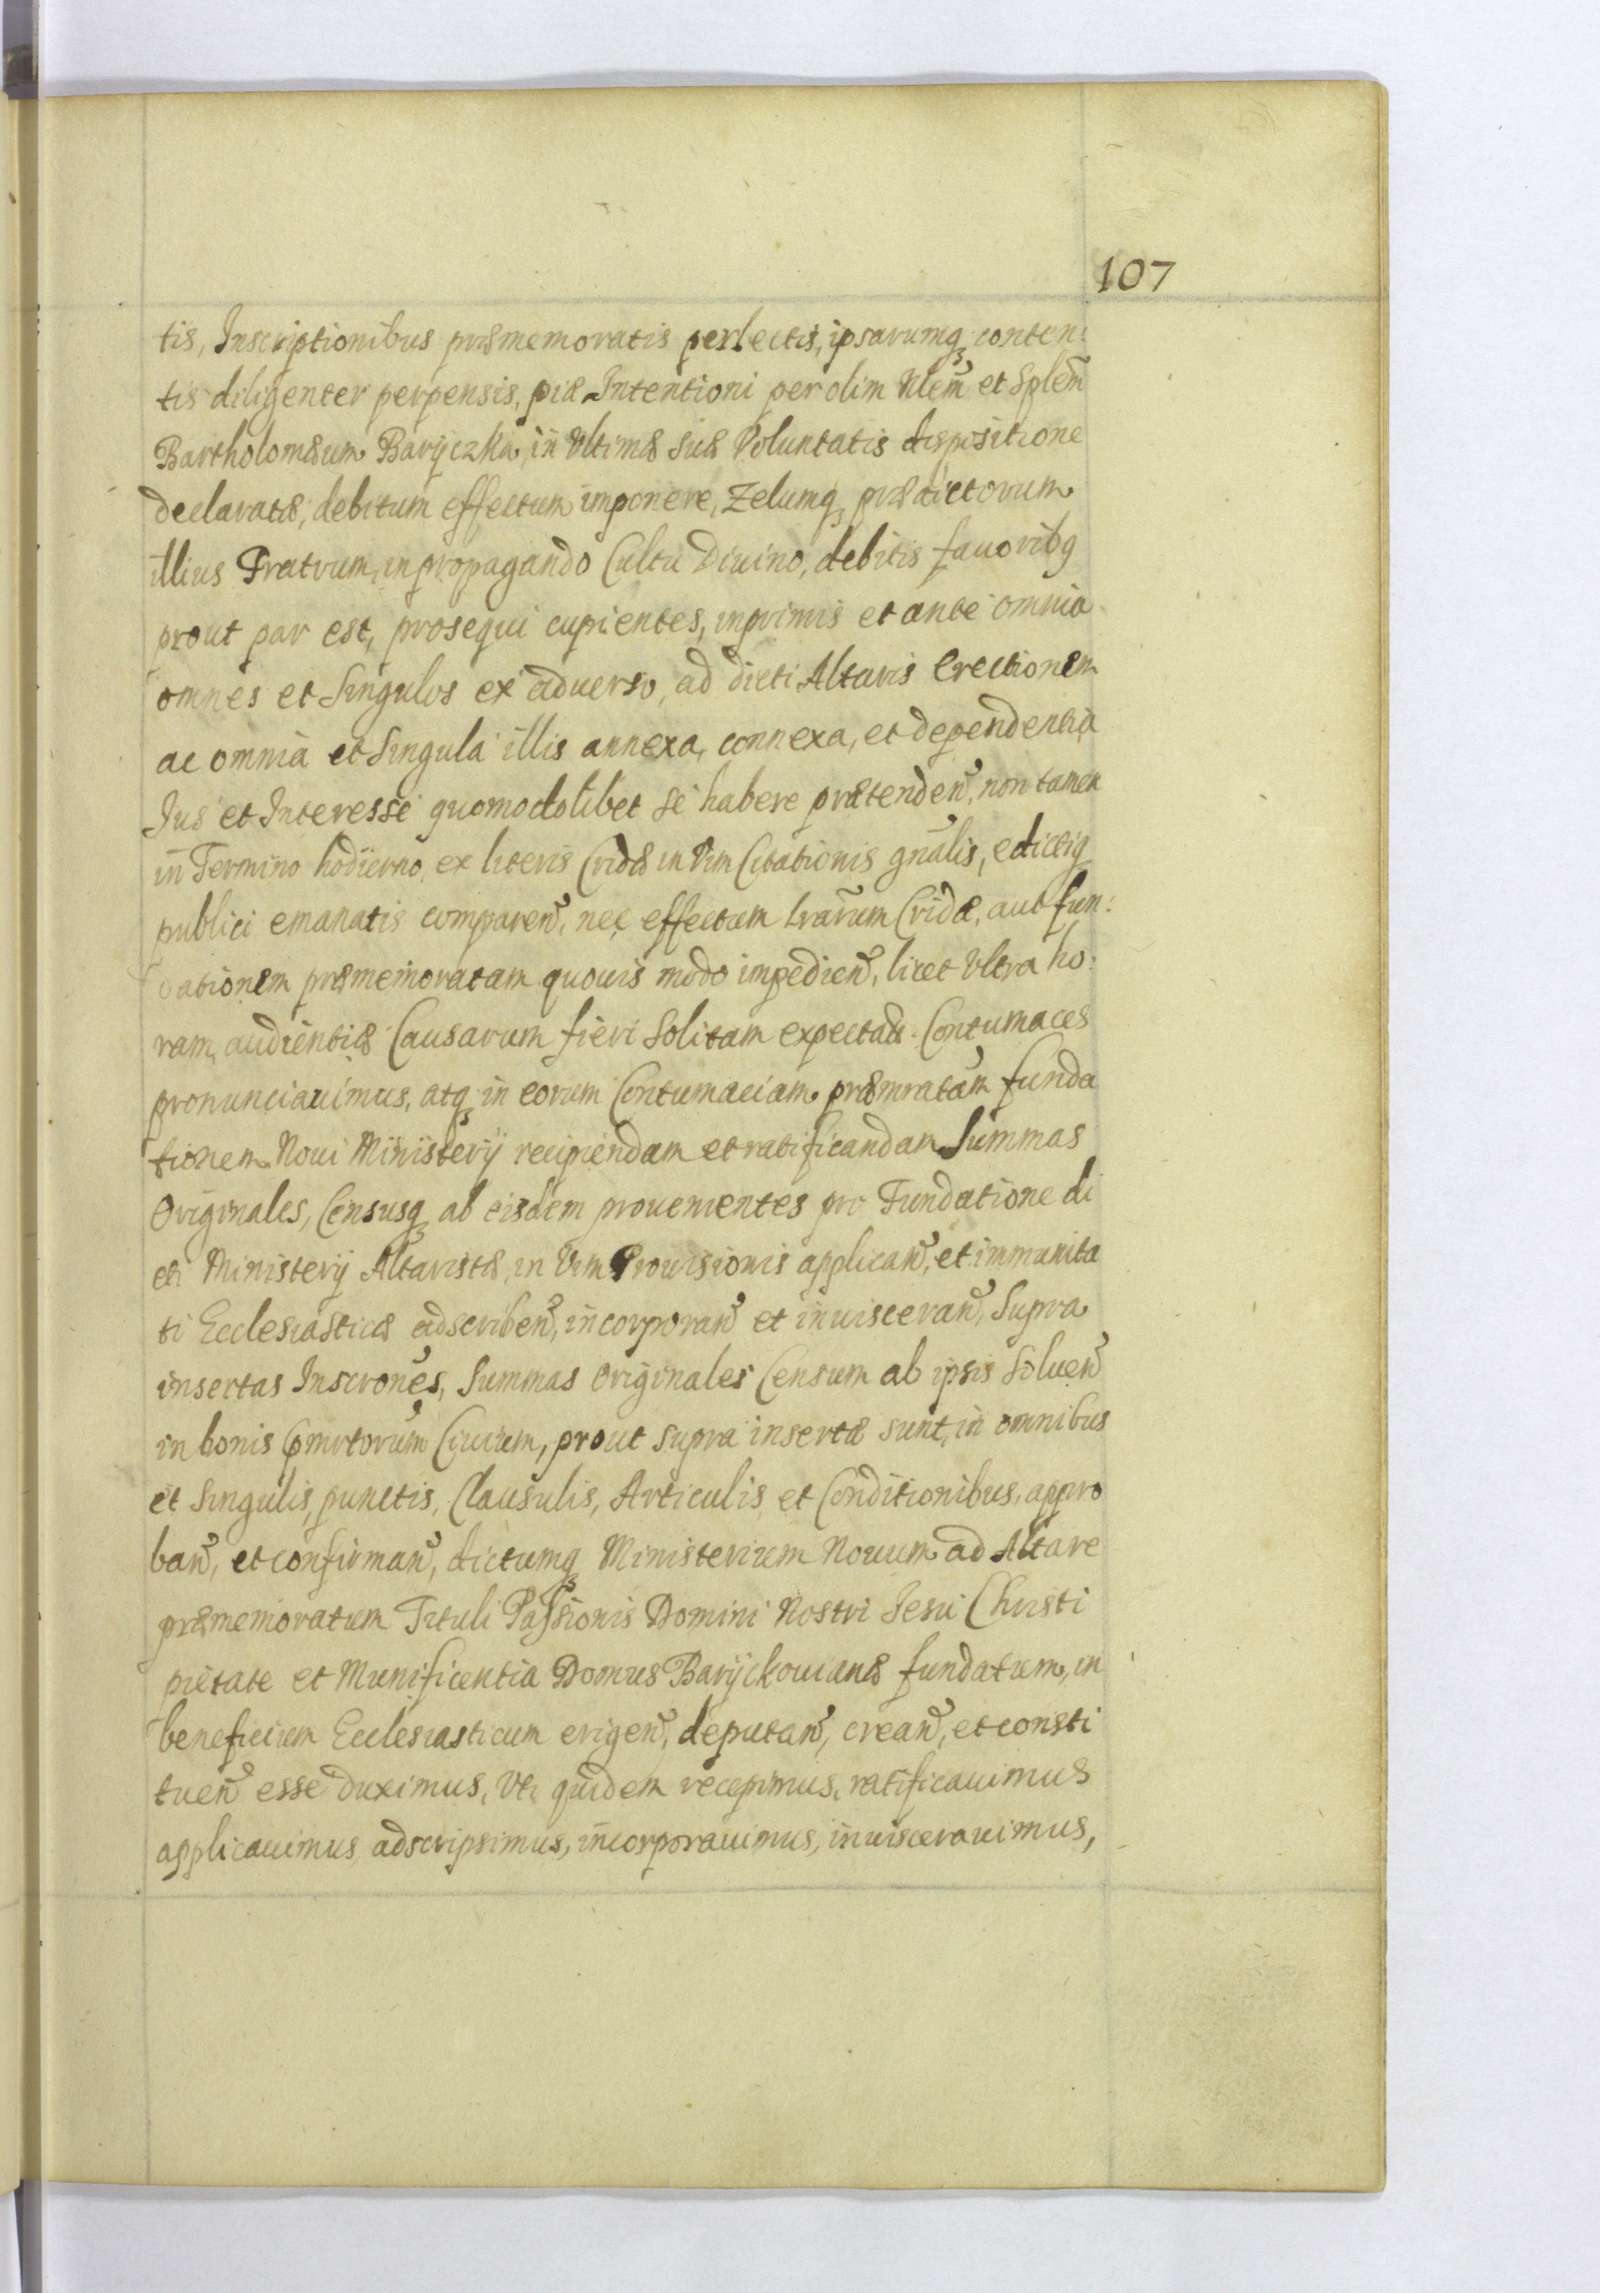 107
tis, Inscriptionibus præmemoratis perlectis, ipsarumq; conten:
tis diligenter perpensis, piæ Intentioni per olim Nlem̃ et Splem̃
Bartholomæum Barÿczka, in Vltimæ suæ Voluntatis dispositione
declaratæ, debitum effectum imponere, Zelumq; prædictorum
illius Fratrum, in propagando Cultu Diuino, debitis fauoribꝯ
prout par est, prosequi cupientes, inprimis et ante omnia
omnes et Singulos ex aduerso, ad dicti Altaris Erectionem
ac omnia et Singula illis annexa, connexa, et dependentia
Jus et Interesse quomodolibet se habere prætenden̄, non tamen
in Termino hodierno, ex literis Cridæ in Vim Citationis gn̄alis, edictiq;
publici emanatis comparen̄, nec effectum lrārum Cridæ, aut fun:
dationem præmemoratam quouis modo impedien̄, licet Vltra ho:
ram, audientiæ Causarum fieri Solitam expectatæ Contumaces
pronunciauimus, atq; in eorum Contumaciam præmratam funda
tionem Noui Ministerÿ recipiendam et ratificandam Summas
Originales, Censusq; ab eisdem prouenientes pro Fundatione di
cti Ministerÿ Altaristæ, in Vim Prouisionis applican̄, et immunita
ti Ecclesiasticæ adscriben̄, incorporan̄ et inuisceran̄, Supra
insertas Inscrōnes, Summas Originales Censum ab ipsis Soluen̄
in bonis Cmrtorum Ciuium, prout supra insertæ sunt, in omnibus
et Singulis, punctis, Clausulis, Articulis et Conditionibus, appro
ban̄, et confirman̄, dictumq; Ministerium Nouum ad Altare
præmemoratum Tituli Passionis Domini Nostri Jesu Christi
pietate et Munificentia Domus Barÿckouianæ fundatum, in
beneficium Ecclesiasticum erigen̄, deputan̄, crean̄, et consti
tuen̄ esse duximus, Vti quidem recepimus, ratificauimus
applicauimus, adscripsimus, incorporauimus, inuiscerauimus,